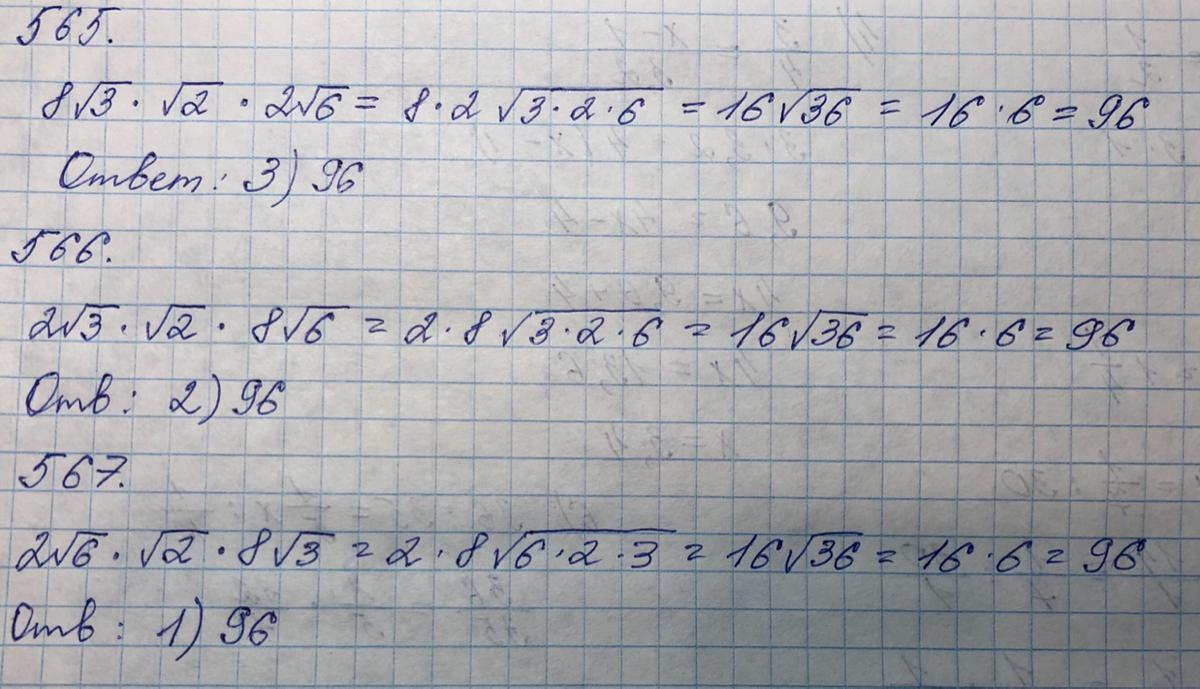 565.
8√3 · √2 · 2√6 = 8 · 2 √3 · 2 · 6 = 16√36 = 16 · 6 = 96
Ответ: 3) 96
566.
2√3 · √2 · 8√6 = 2 · 8 √3 · 2 · 6 = 16√36 = 16 · 6 = 96
Отв: 2) 96
567.
2√6 · √2 · 8√3 = 2 · 8√6 · 2 · 3 = 16√36 = 16 · 6 = 96
Отв: 1) 96